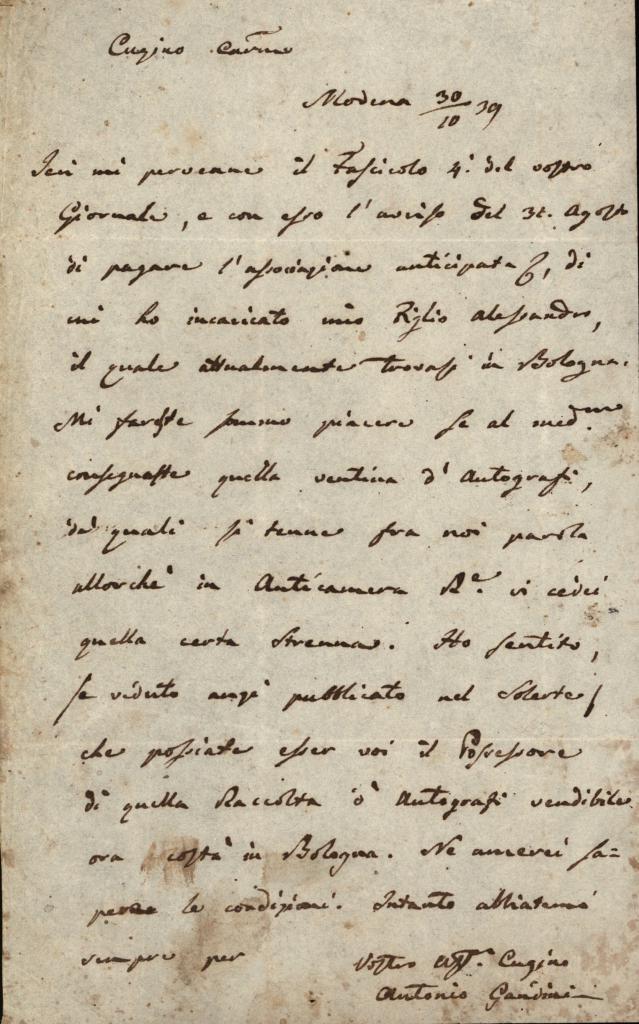 Cugino Carmo
Modena 30/10 39
Ieri mi pervenne il Fascicolo 4.º del vostro
Giornale, e con esso l'avviso del 31. Agosto
di pagare l'associazione anticipata, di
cui ho incaricato mio Figlio Alessandro,
il quale attualmente trovasi in Bologna.
Mi fareste sommo piacere se al medmo.
consegnaste quella ventina d'Autografi,
da' quali si tenne fra noi parola
allorchè in Anticamera Re. vi cedei
quella certa Strenna. Ho sentito,
(e veduto anzi pubblicato nel Solerte)
che possiate esser voi il Possessore
di quella Raccolta d'Autografi vendibile
ora costà in Bologna. Ne amerei sa=
pere le condizioni. Intanto abbiatemi
sempre per
Vostro Affo. Cugino
Antonio Gandini